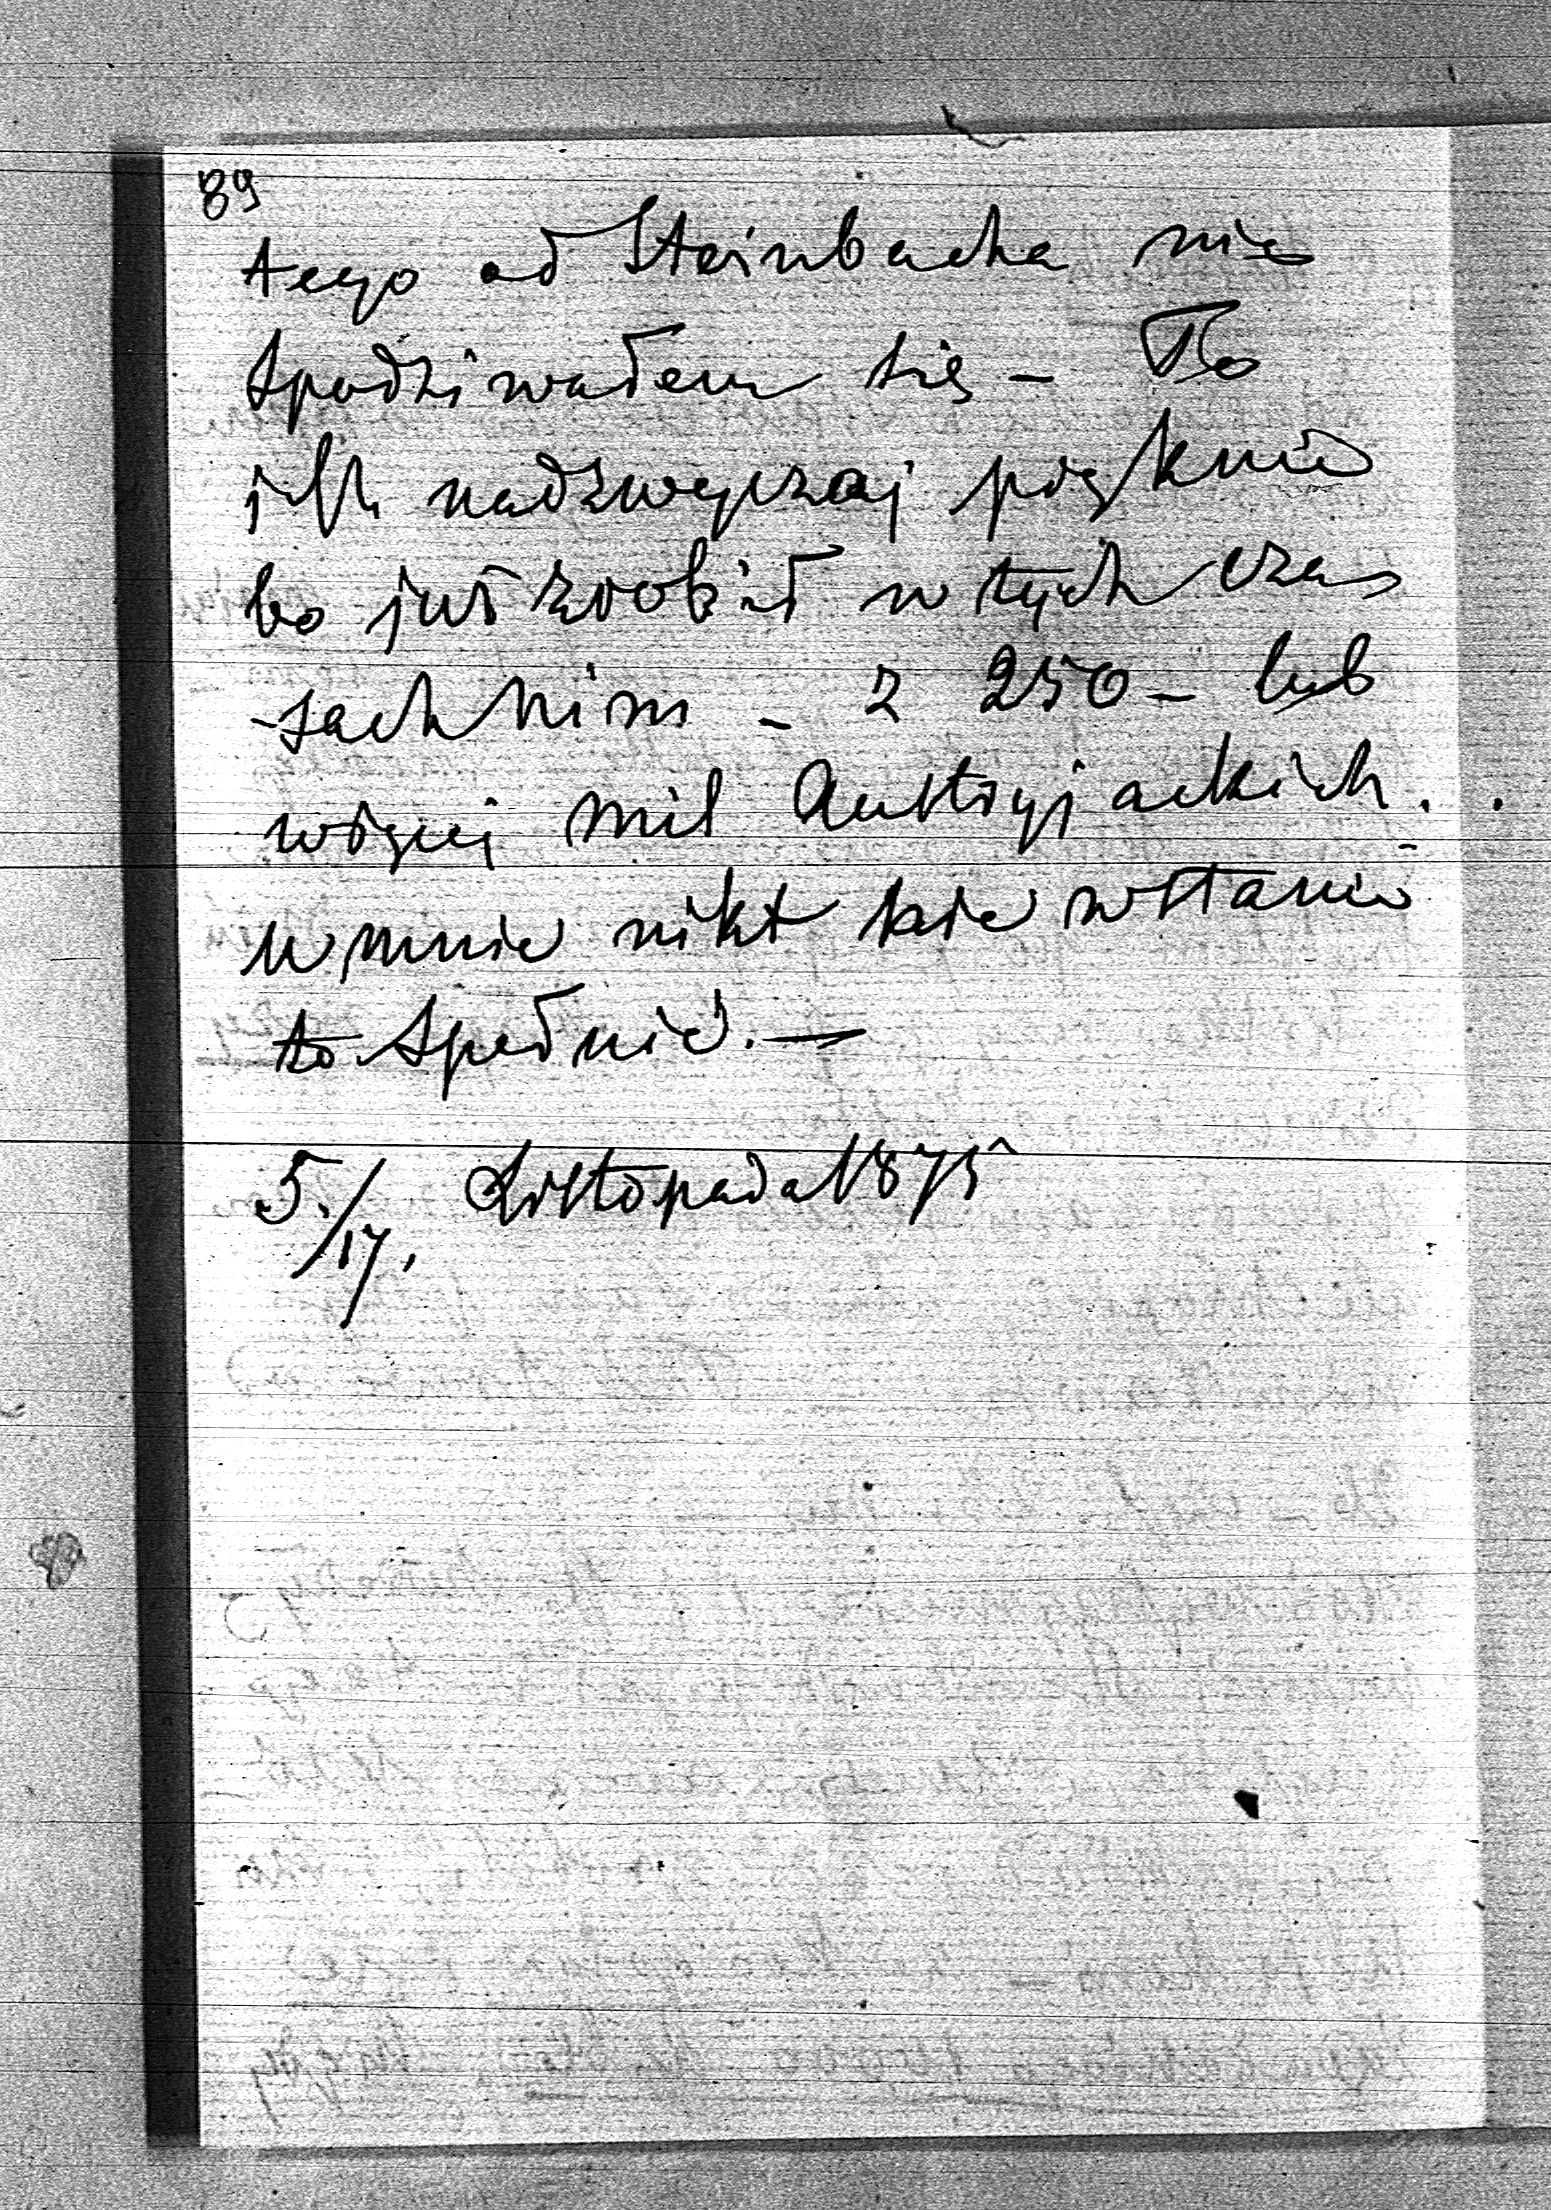 89
tego od Steinbacha nie
spodziwałem się – To
jest nadzwyczaj pięknie
bo już zrobił w tych czas
-sach nim – z 250 – lub
więcej mil Austryjackich.
u mnie nikt nie wstanie
to spełnić. —
5./17. Listopada 1875